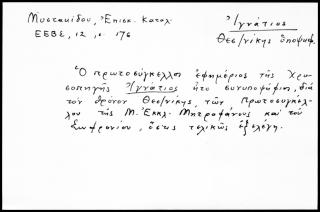 Μυστακίδου, Ἐπισκ. Κατάλ.
ΕΕΒΣ, 12, σ. 176
Ἰγνάτιος
Θεσ/νίκης ὑποψηφ.
Ὁ πρωτοσύγκελλος ἐφημέριος τῆς Χρυ-
σοπηγῆς Ἰγνάτιος ἦτο συνυποψήφιος, διὰ
τὸν θρόνον Θεσ/νίκης, τῶν Πρωτοσυγκέλ-
λου τῆς Μ. Ἐκκλ. Μητροφάνους καὶ τοῦ
Σωφρονίου, ὅστις τελικῶς ἐξελέγη.